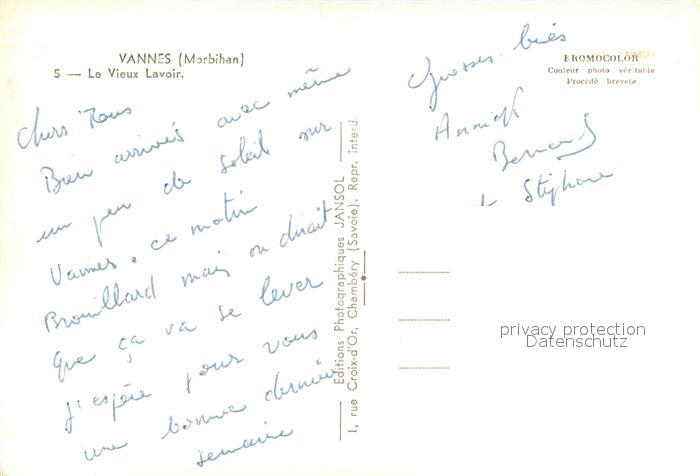 VANNES (Morbihan)
5 — Le Vieux Lavoir.
Chers Tous
Bien arrivés avec même
un peu de soleil sur
Vannes. ce matin
Brouillard mais on dirait
que ça va se lever
j'espère pour vous
une bonne dernière
semaine
Editions Photographiques JANSOL
1, rue Croix-d'Or, Chambéry (Savoie). Repr. interd.
Grosses bises
Annick
Bernard
Stéphane
BROMOCOLOR
Couleur photo véritable
Procédé breveté
privacy protection
Datenschutz